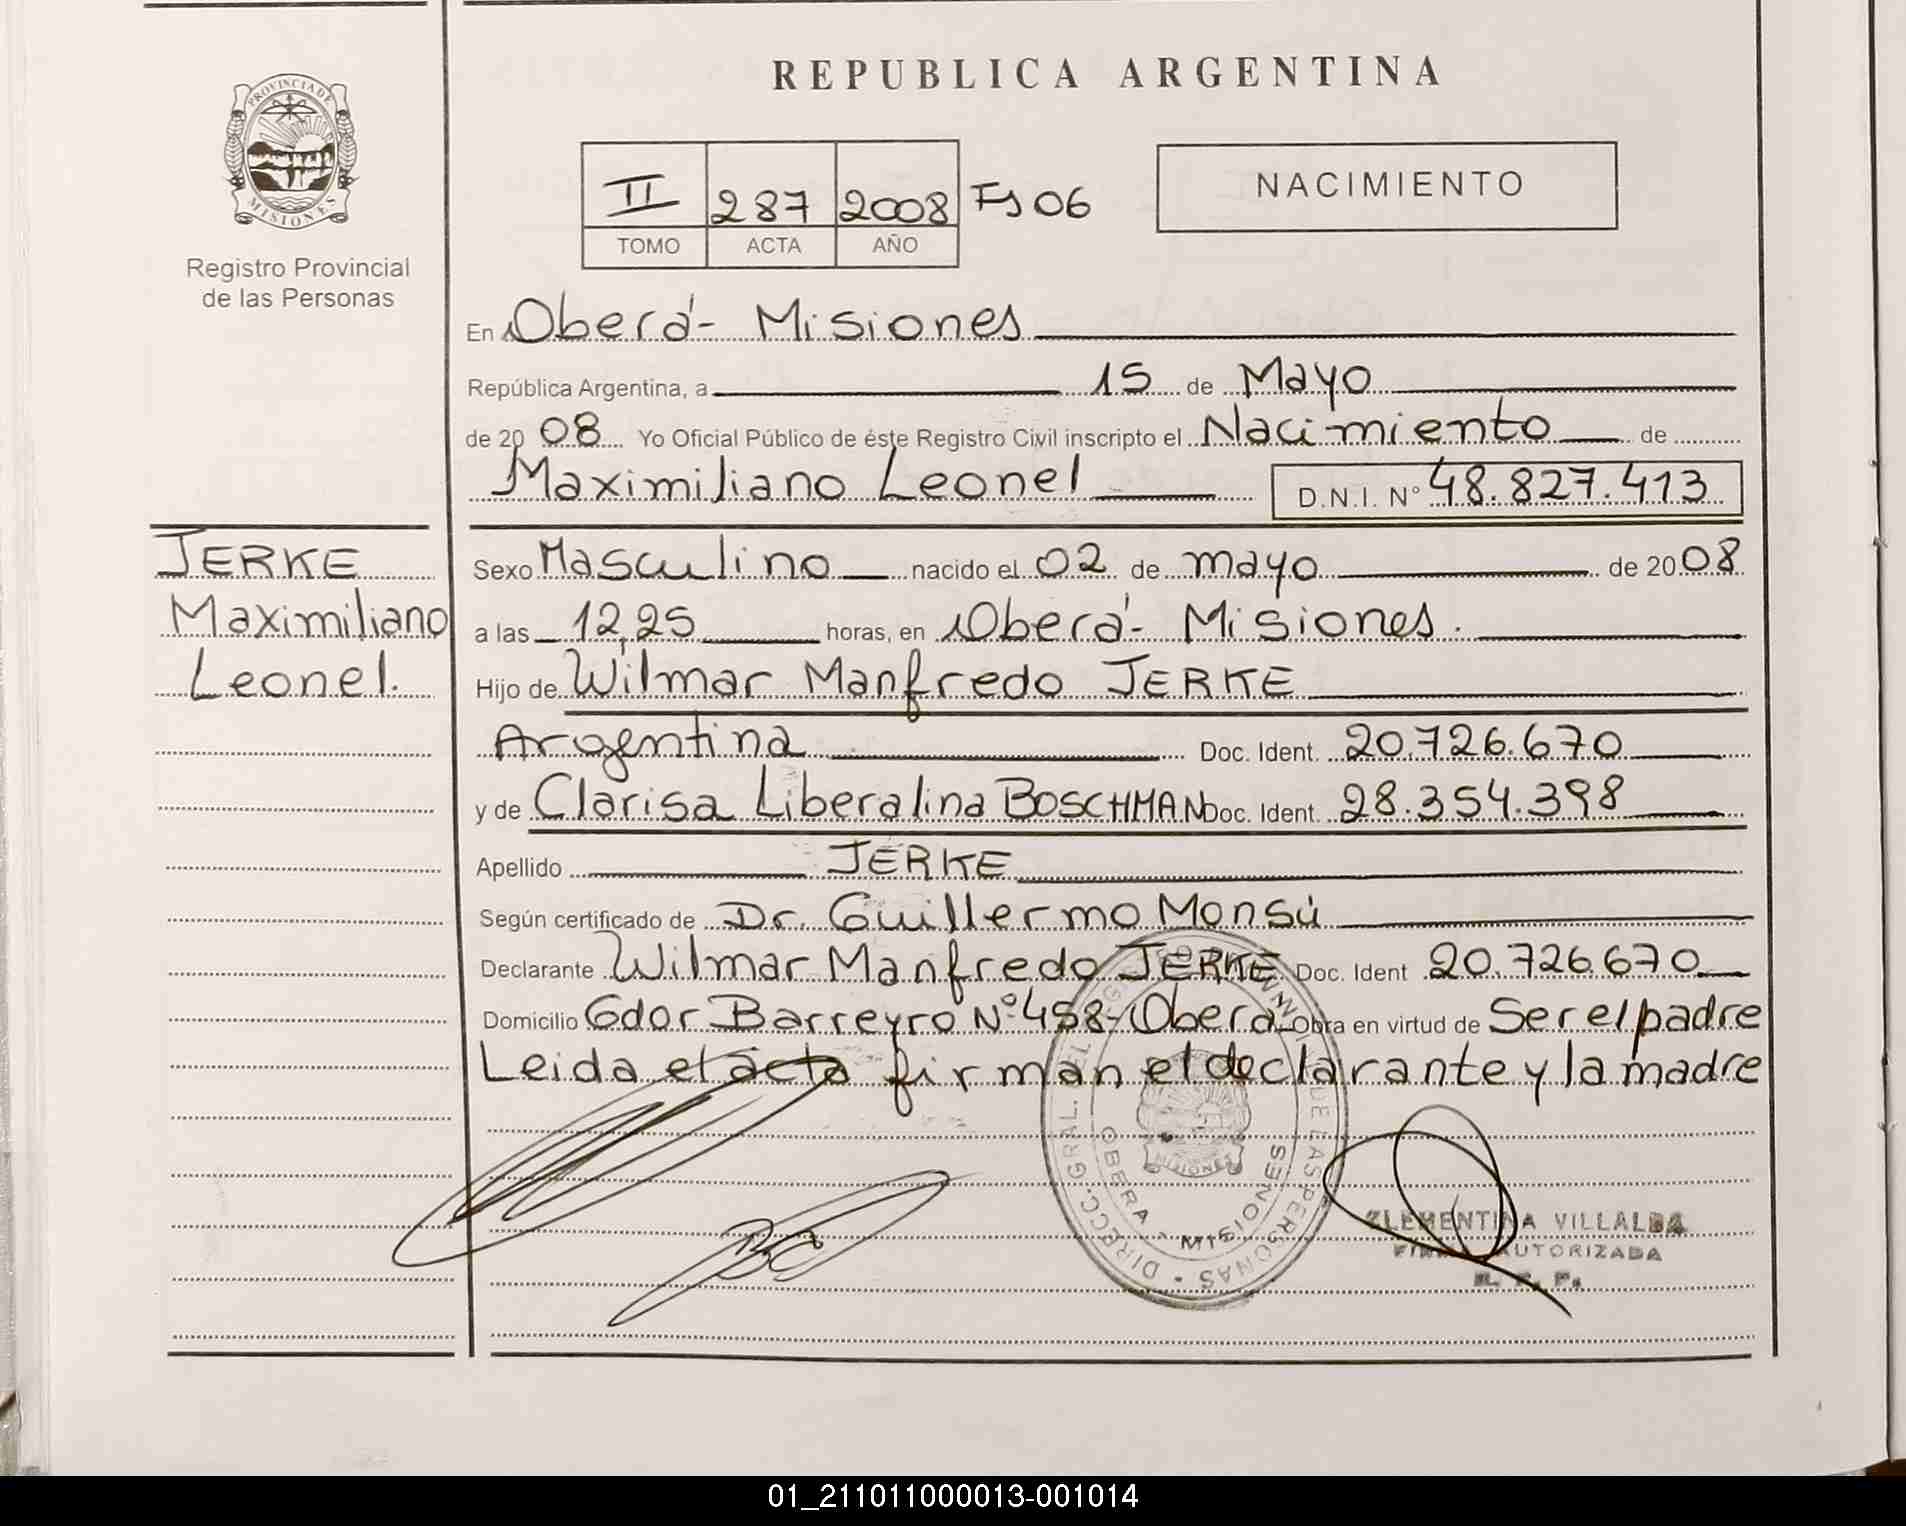 REPUBLICA ARGENTINA
PROVINCIA DE
MISIONES
Registro Provincial
de las Personas
II 287 2008 Fs 06
TOMO ACTA AÑO
NACIMIENTO
En Oberá - Misiones
República Argentina, a 15 de Mayo
de 20 08 Yo Oficial Público de éste Registro Civil inscripto el Nacimiento de
Maximiliano Leonel D.N.I. N° 48.827.413
JERKE
Maximiliano
Leonel.
Sexo Masculino nacido el 02 de mayo de 20 08
a las 12,25 horas, en Oberá - Misiones.
Hijo de Wilmar Manfredo JERKE
Argentina Doc. Ident. 20.726.670
y de Clarisa Liberalina BOSCHMAN Doc. Ident. 28.354.398
Apellido JERKE
Según certificado de Dr. Guillermo Monsú
Declarante Wilmar Manfredo JERKE Doc. Ident 20.726.670
Domicilio Gdor Barreyro N° 458 - Oberá Obra en virtud de Ser el padre
Leida el acta firman el declarante y la madre
DIRECC. GRAL. DEL DE LAS PERSONAS
OBERA - MISIONES
MISIONES
CLEMENTINA VILLALBA
FIRMA AUTORIZADA
R. P. P.
01_211011000013-001014